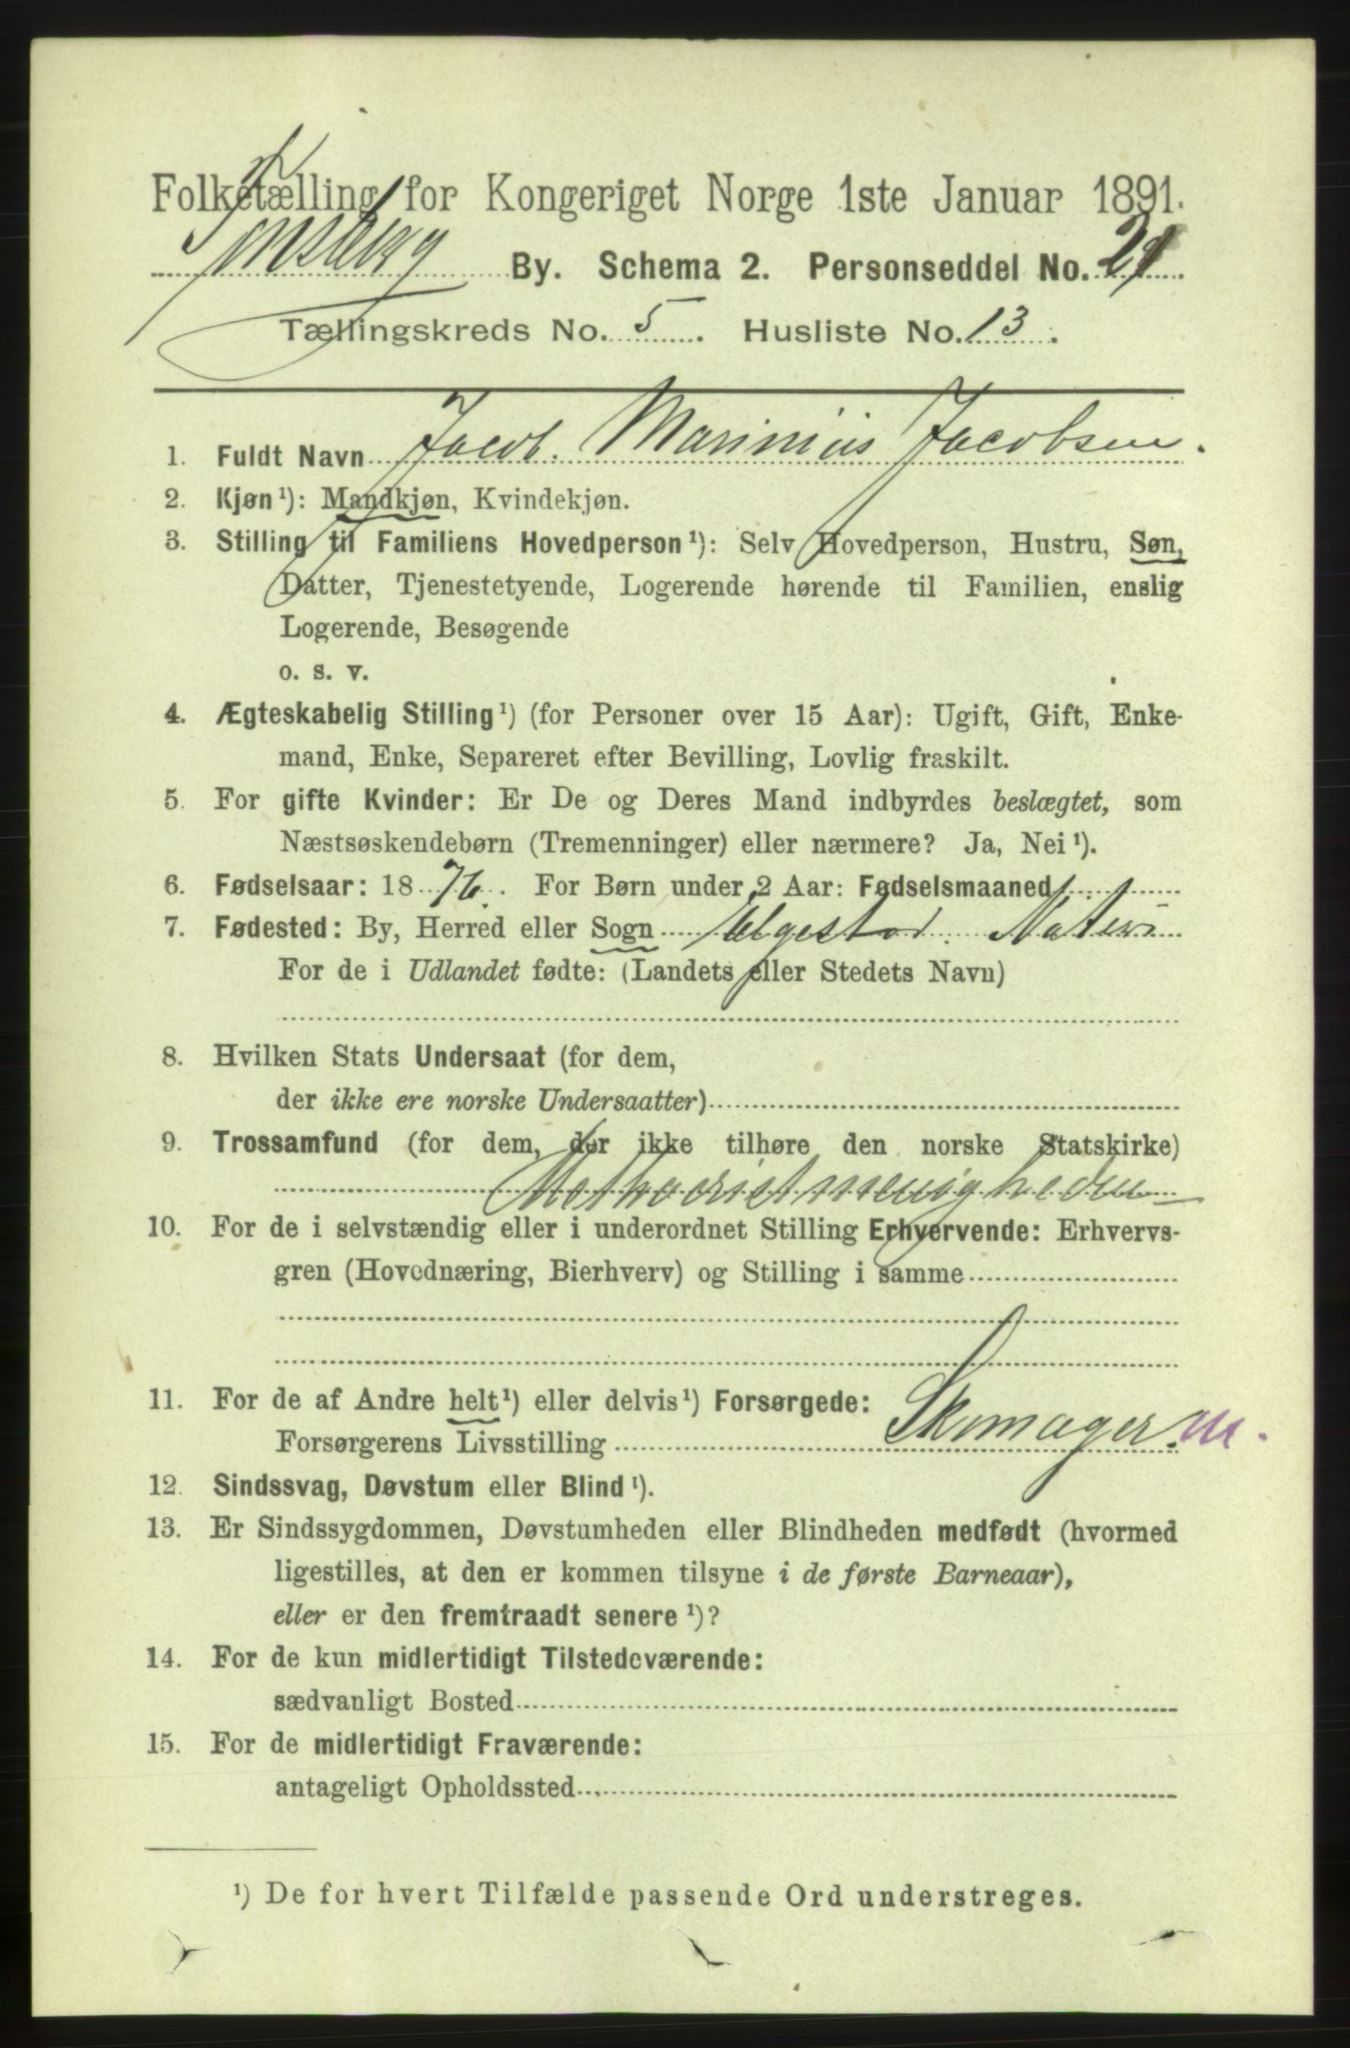 Folketælling for Kongeriget Norge 1ste Januar 1891.
Tønsberg By. Schema 2. Personseddel No. 21
Tællingskreds No. 5. Husliste No. 13.
1. Fuldt Navn Jacob. Marinius Jacobsen.
2. Kjøn¹): Mandkjøn, Kvindekjøn.
3. Stilling til Familiens Hovedperson¹): Selv Hovedperson, Hustru, Søn,
Datter, Tjenestetyende, Logerende hørende til Familien, enslig
Logerende, Besøgende
o. s. v.
4. Ægteskabelig Stilling¹) (for Personer over 15 Aar): Ugift, Gift, Enke-
mand, Enke, Separeret efter Bevilling, Lovlig fraskilt.
5. For gifte Kvinder: Er De og Deres Mand indbyrdes beslægtet, som
Næstsøskendebørn (Tremenninger) eller nærmere? Ja, Nei¹).
6. Fødselsaar: 1876. For Børn under 2 Aar: Fødselsmaaned
7. Fødested: By, Herred eller Sogn
For de i Udlandet fødte: (Landets eller Stedets Navn)
8. Hvilken Stats Undersaat (for dem,
der ikke ere norske Undersaatter)
9. Trossamfund (for dem, der ikke tilhøre den norske Statskirke)
Methodristmenigheden
10. For de i selvstændig eller i underordnet Stilling Erhvervende: Erhvervs-
gren (Hovednæring, Bierhverv) og Stilling i samme
11. For de af Andre helt¹) eller delvis¹) Forsørgede:
Forsørgerens Livsstilling Skomager. m.
12. Sindssvag, Døvstum eller Blind¹).
13. Er Sindssygdommen, Døvstumheden eller Blindheden medfødt (hvormed
ligestilles, at den er kommen tilsyne i de første Barneaar),
eller er den fremtraadt senere¹)?
14. For de kun midlertidigt Tilstedeværende:
sædvanligt Bosted
15. For de midlertidigt Fraværende:
antageligt Opholdssted
¹) De for hvert Tilfælde passende Ord understreges.